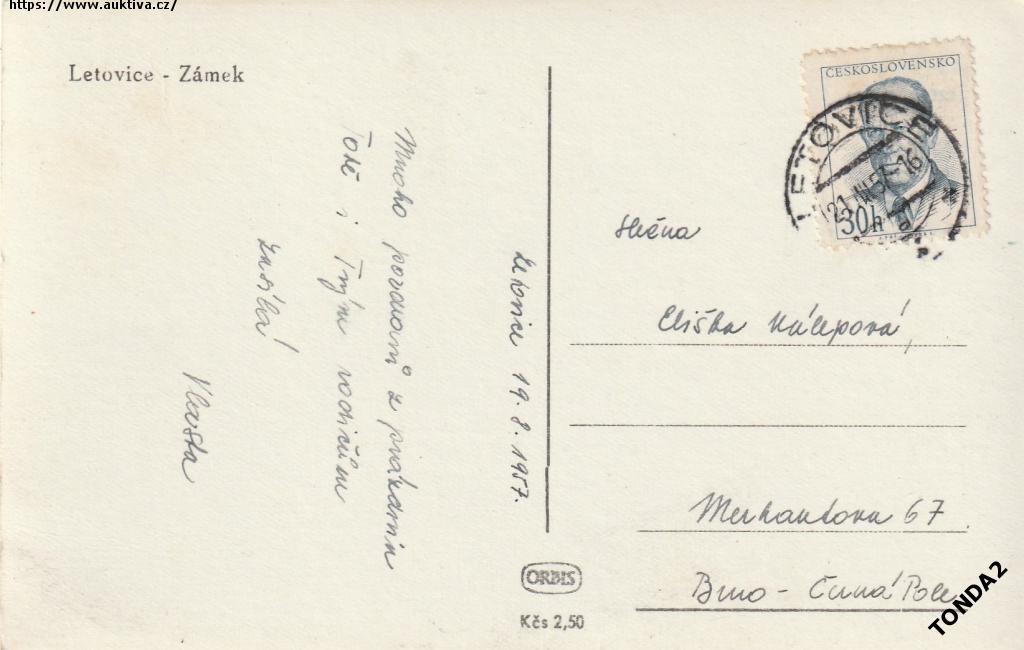 https://www.auktiva.cz/
Letovice - Zámek
Mnoho pozdravů z prázdnin
Tobě i Tvým rodičům
zasílá
Vlasta
Letovice 19. 8. 1957.
ČESKOSLOVENSKO
30h
LETOVICE
21.VIII.57-16
Slečna
Eliška Kálepová,
Merhautova 67
Brno - Černá Pole
ORBIS
Kčs 2,50
TONDA2